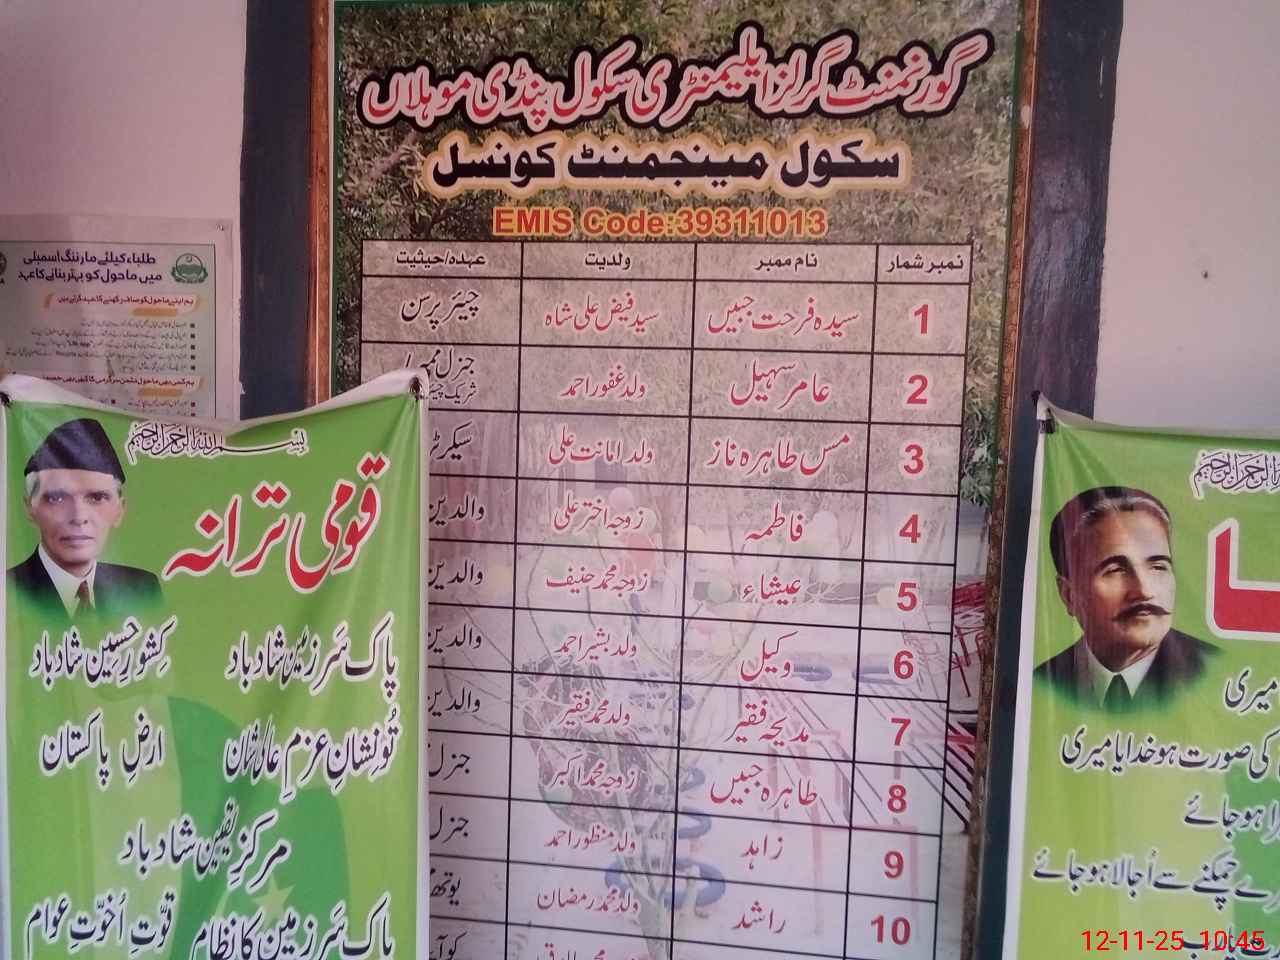 گورنمنٹ گرلز ایلیمنٹری سکول پنڈی موہلاں
سکول مینجمنٹ کونسل
EMIS Code:39311013
نمبر شمار نام ممبر ولدیت عہدہ/حیثیت
1 سیدہ فرحت جبیں سید فیض علی شاہ چیئرپرسن
2 عامر سہیل ولد غفور احمد جنرل
شریک
3 مس طاہرہ ناز ولد امانت علی
4 فاطمہ زوجہ اختر علی والدین
5 عیشاء زوجہ محمد حنیف والدین
6 وکیل ولد بشیر احمد والدین
7 مدیحہ فقیر ولد محمد فقیر والدین
8 طاہرہ جبیں زوجہ محمد اکبر جنرل
9 زاہد ولد منظور احمد جنرل
10 راشد ولد محمد رمضان
طلباء کیلئے مارننگ اسمبلی
میں ماحول کو بہتر بنانے کا عہد
ہم اپنے ماحول کو صاف رکھنے کا عہد کرتے ہیں
بسم اللہ الرحمن الرحیم
قومی ترانہ
پاک سَرزمین شاد باد کِشورِ حسین شاد باد
تُو نِشانِ عزمِ عالی شان ارضِ پاکستان
مرکزِ یقین شاد باد
پاک سَرزمین کا نظام قوّتِ اُخوّتِ عوام
بسم اللہ الرحمن الرحیم
میری
کی صورت ہو خدایا میری
ہو جائے
چمکنے سے اُجالا ہو جائے
12-11-25 10:45